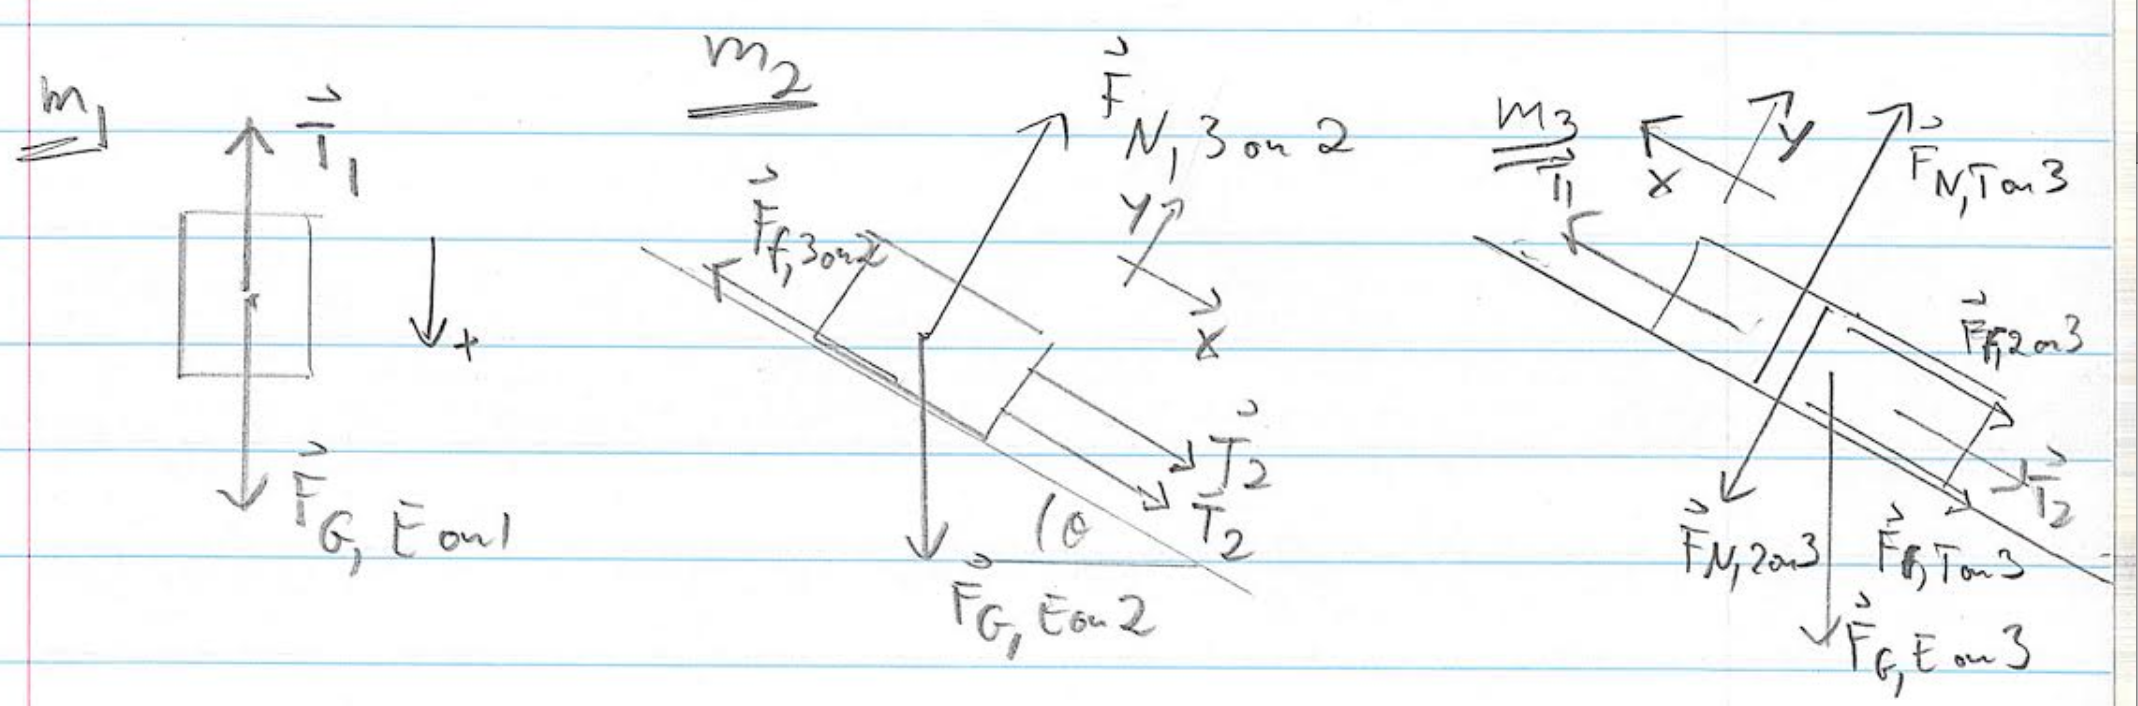 m1
T1
F G, E on 1
x
m2
F N, 3 on 2
F f, 3 on 2
y
x
T2
T2
θ
F G, E on 2
m3
T1
x
y
F N, T on 3
F f, 2 on 3
T2
F N, 2 on 3
F f, T on 3
F G, E on 3